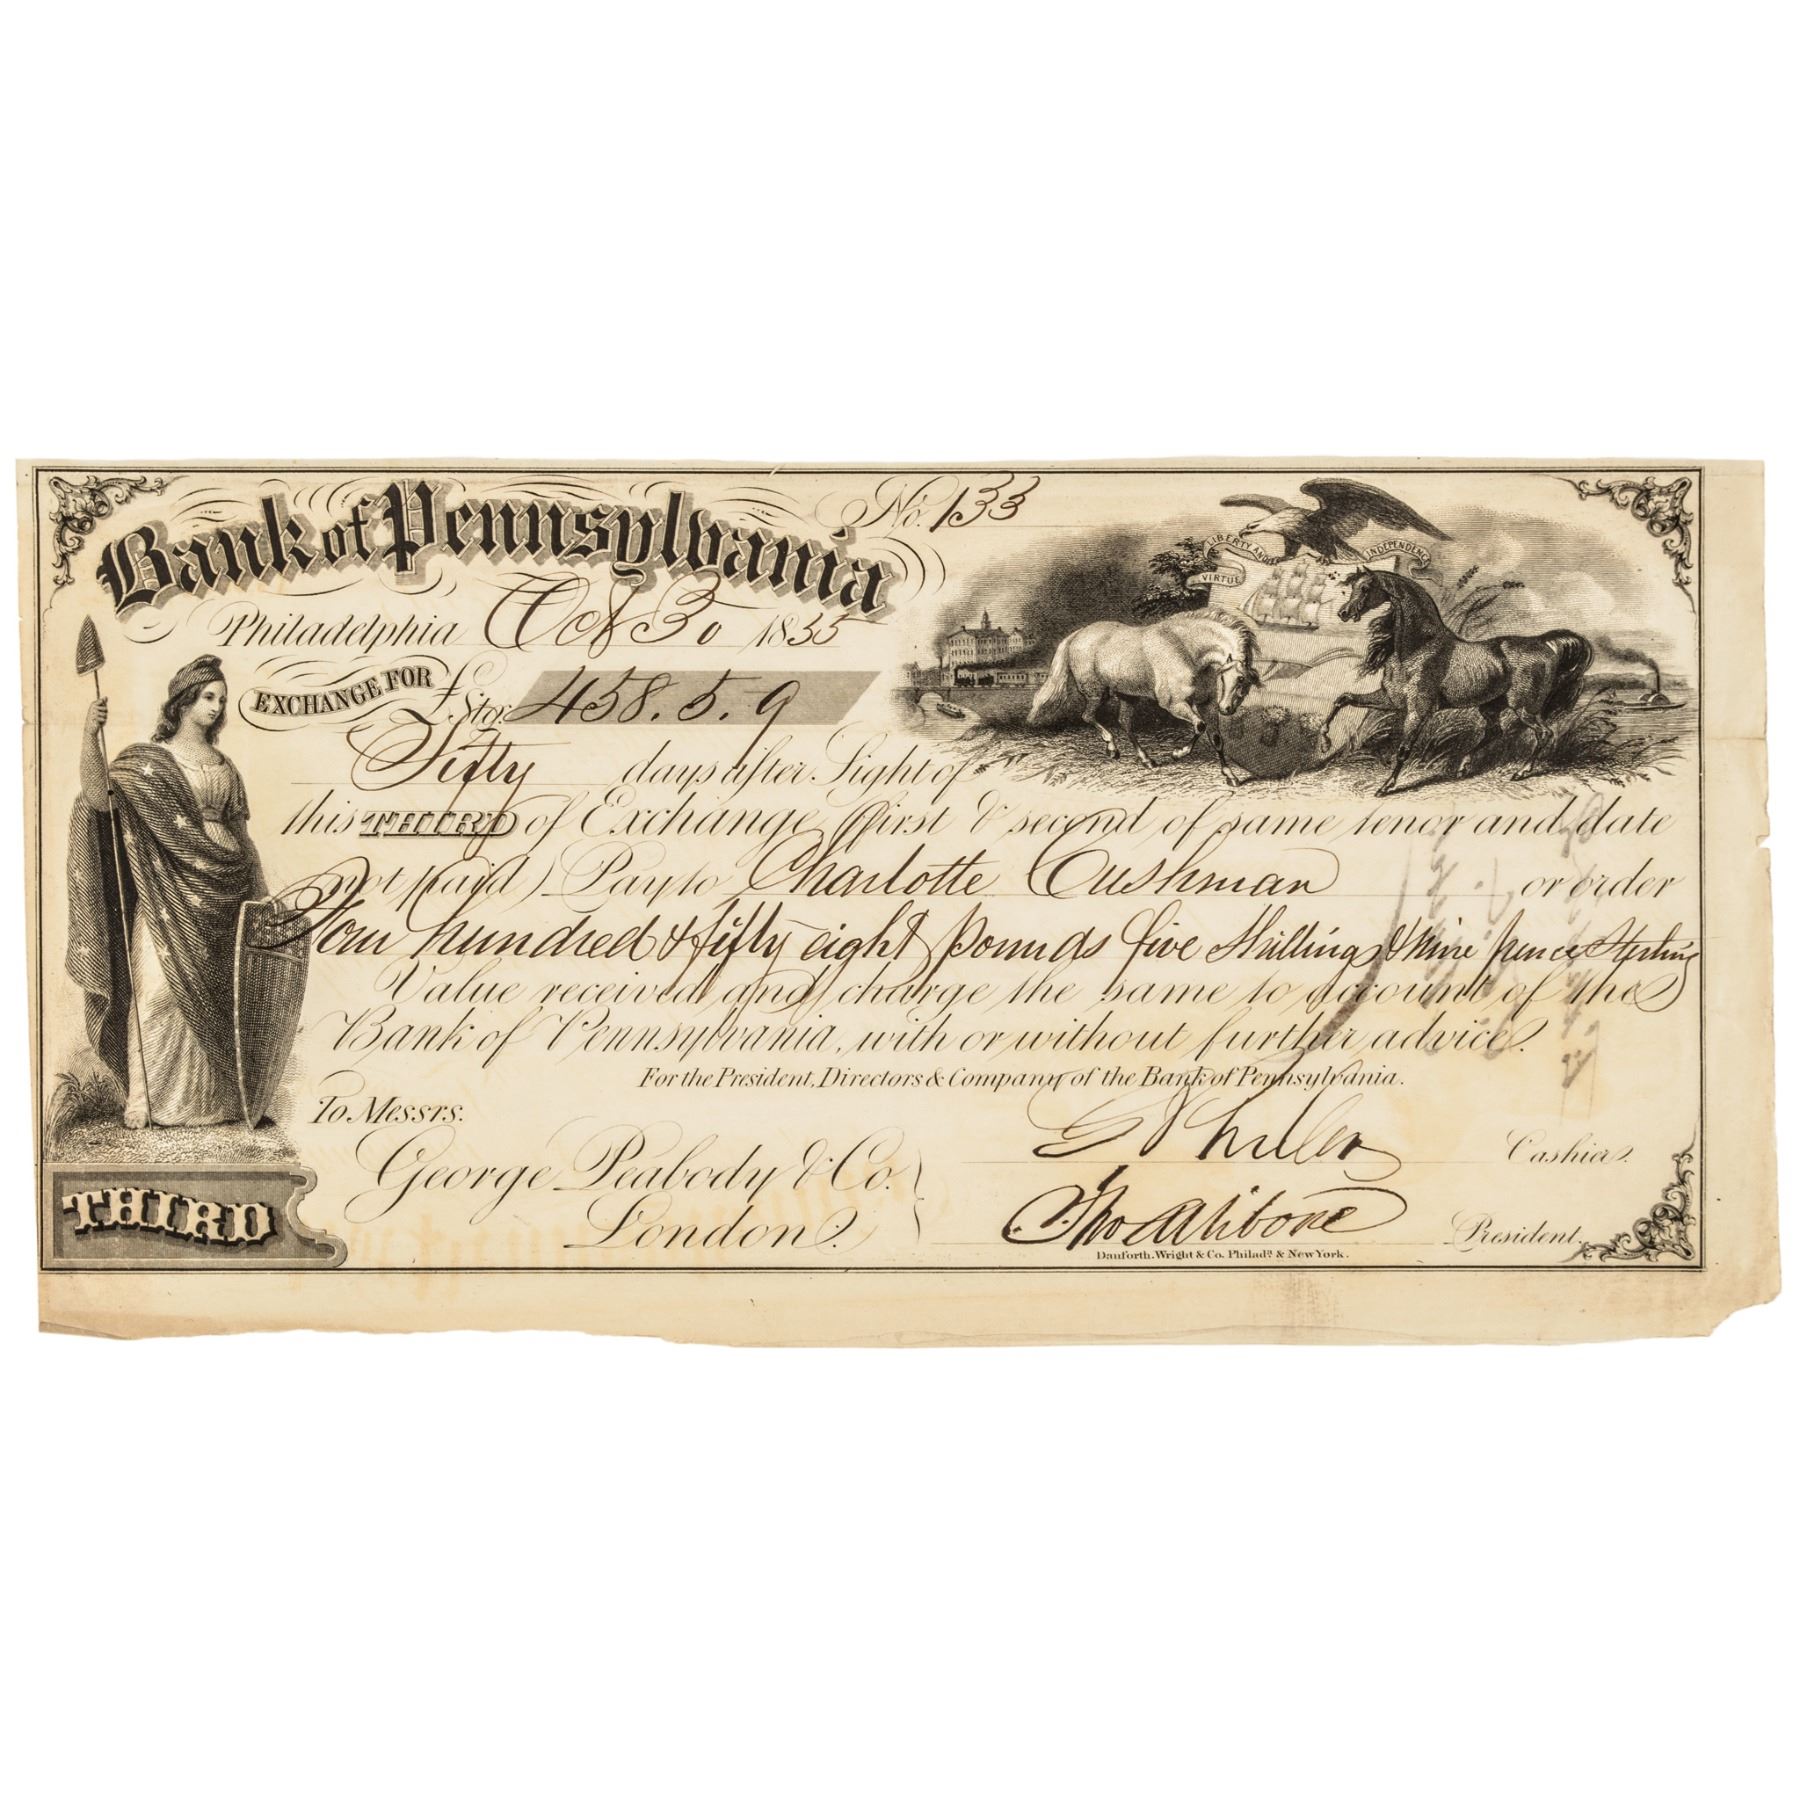 Bank of Pennsylvania
No. 133
LIBERTY AND
INDEPENDENCE
VIRTUE
Philadelphia Oct 30 1855
EXCHANGE FOR £ Stg. 458.5.9
Fifty days after Sight of
this THIRD of Exchange (first & second of same tenor and date
not paid) Pay to Charlotte Cushman or order
Four hundred & fifty eight pounds five Shillings & Nine pence Sterling
Value received and charge the same to account of the
Bank of Pennsylvania, with or without further advice.
For the President, Directors & Company of the Bank of Pennsylvania.
To Messrs.
George Peabody & Co.
London.
Cashier.
Tho Allibone President.
THIRD
Danforth, Wright & Co. Philada. & New York.